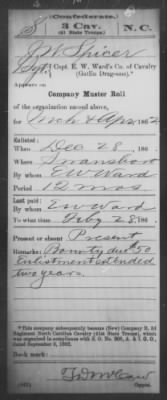 Confederate.
S 3 Cav. N. C.
(41 State Troops.)
J W Spicer
Capt. E. W. Ward's Co. of Cavalry
(Gatlin Dragoons).*
Appears on
Company Muster Roll
of the organization named above,
for Mch & Apr, 1862
Enlisted:
When Dec 28, 186
Where Swansboro
By whom E W Ward
Period 12 mos
Last paid:
By whom E W Ward
To what time Feby 28, 186
Present or absent Present
Remarks: Bounty due $50
Enlistment extended
two years.
*This company subsequently became (New) Company B, 3d
Regiment North Carolina Cavalry (41st State Troops), which
was organized in compliance with S. O. No. 206, A. & I. G. O.,
dated September 3, 1862.
Book mark:
Copyist.